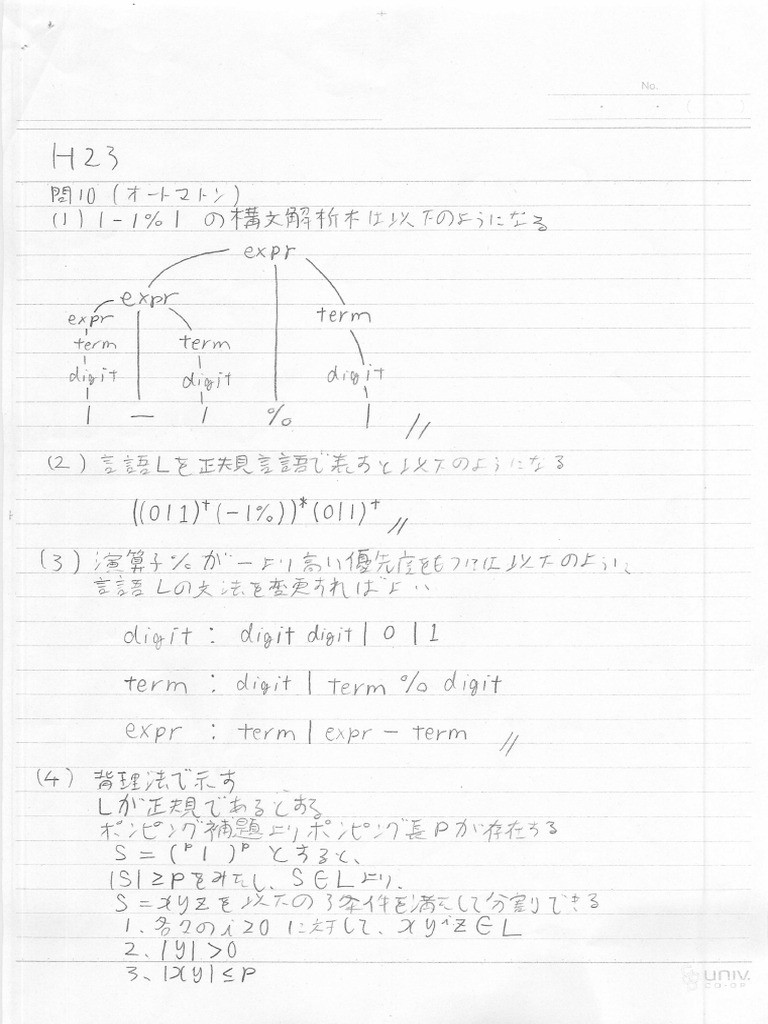 No.
H23
問10 (オートマトン)
(1) 1-1%1 の構文解析木は以下のようになる
expr
expr
expr term
term term
digit digit digit
1 — 1 % 1 //
(2) 言語Lを正規言語で表すと以下のようになる
((0|1)⁺(-|%))*(0|1)⁺ //
(3) 演算子%が−より高い優先度をもつには以下のように、
言語Lの文法を変更すればよい
digit : digit digit | 0 | 1
term : digit | term % digit
expr : term | expr − term //
(4) 背理法で示す
Lが正規であるとする
ポンピング補題よりポンピング長Pが存在する
S = (ᴾ 1 )ᴾ とすると、
|S| ≥ P をみたし、S∈Lより、
S = xyz を以下の3条件を満たして分割できる
1. 各々のi≥0 に対して、xyⁱz∈L
2. |y| > 0
3. |xy| ≤ P
UNIV.
CO-OP